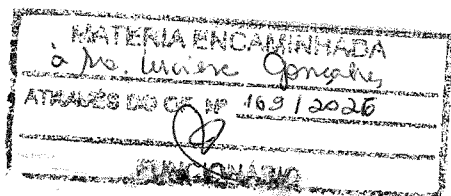 MATERIA ENCAMINHADA
à Luciene Gonçalves
ATRAVÉS DO OF. Nº 169/2026
FUNCIONÁRIO